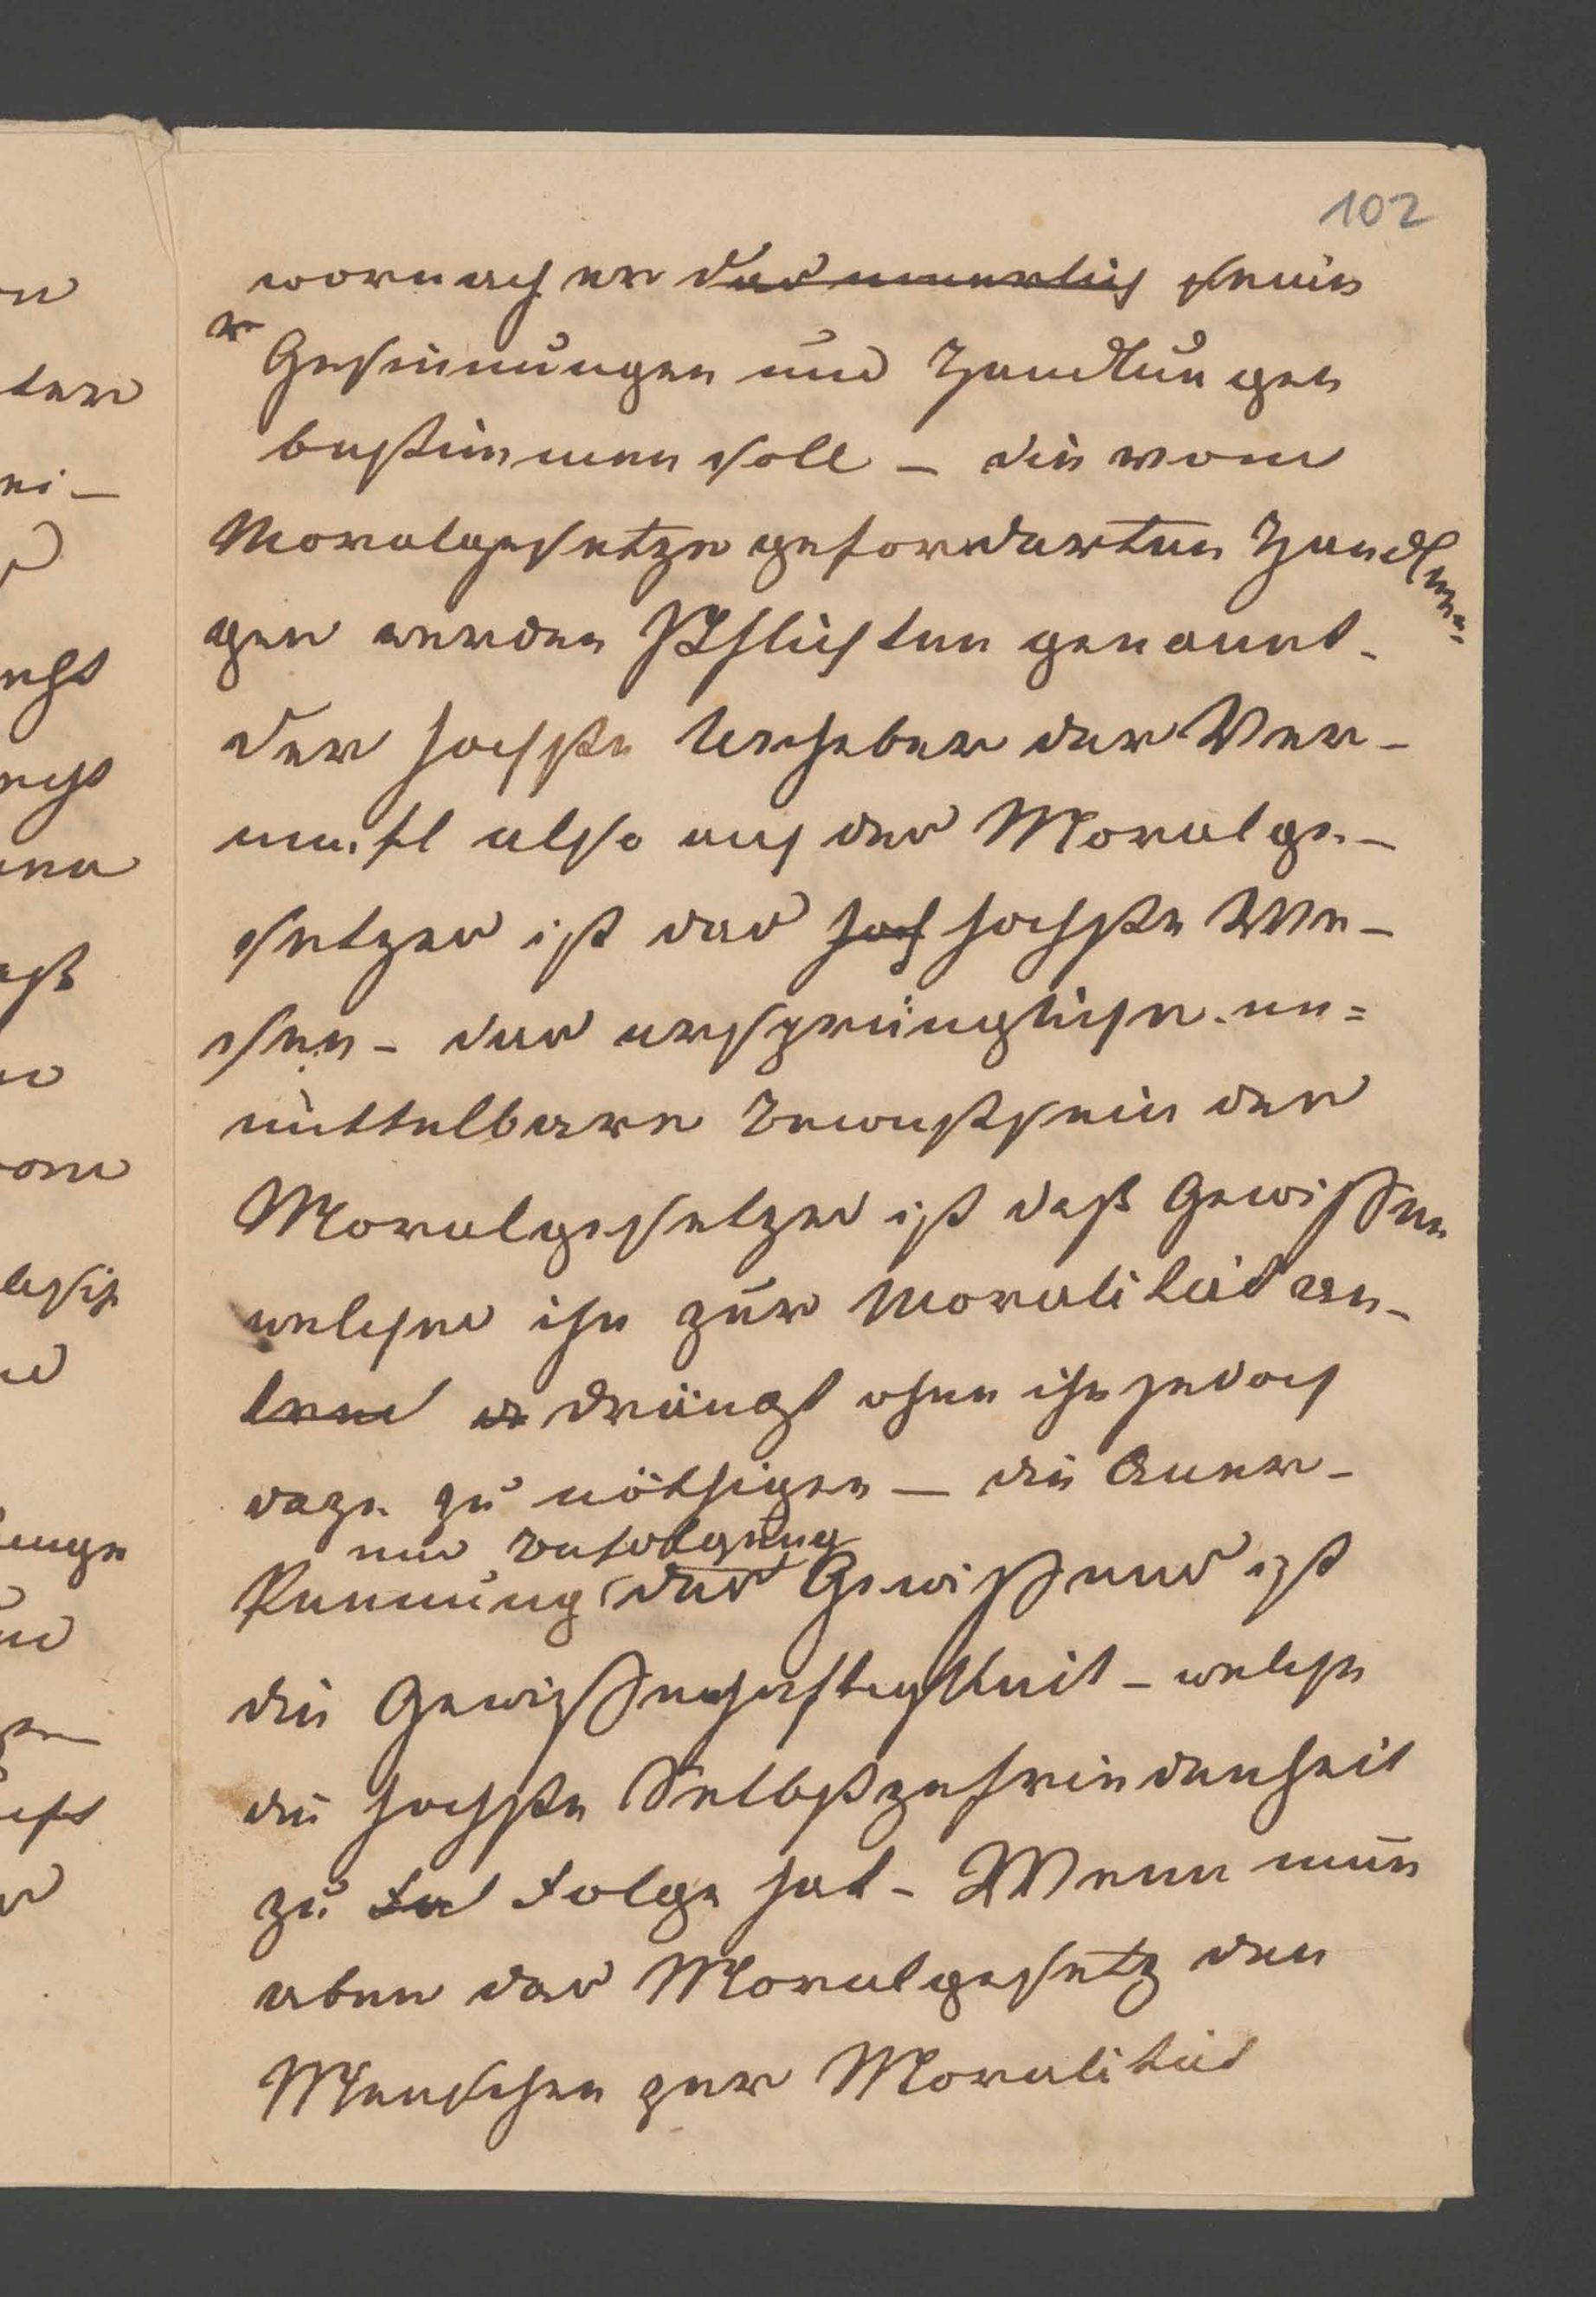 102
wornach er das innerlich sein
e Gesinnungen und Handlungen
bestimmen soll – die vom
Moralgesetze gefordertten Handlun=
gen werden Pflichten genannt.
Der hochste Urheber der Ver–
nunft also auch des Moralge–
setzes ist das hoch hochste We–
sen – das ursprüngliche un=
mittelbare Bewustsein des
Moralgesetzes ist daß Gewissen
welches ihn zur Moralität an–
drängt ohne ihn jedoch
dazu zu nöthigen – die Aner–
und Befolgung
kennung des Gewissens ist
die Gewissenhaftigkeit – welche
die hochste Selbstzufriedenheit
zu Folge hat – Wenn nun
aber das Moralgesetz den
Menschen zur Moralität